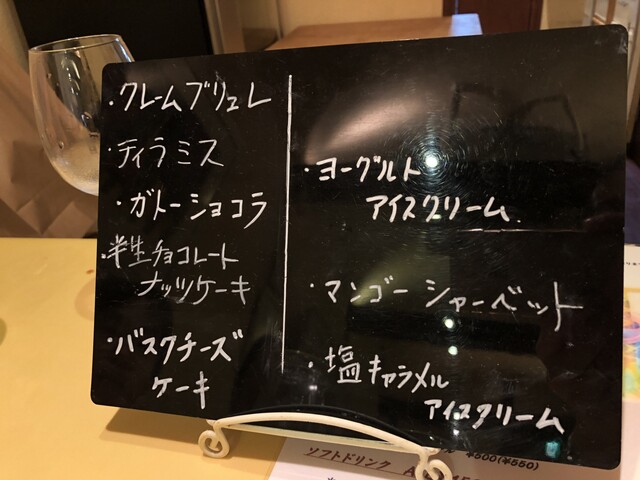 ・クレームブリュレ
・ティラミス
・ガトーショコラ
・半生チョコレート
ナッツケーキ
・バスクチーズ
ケーキ
・ヨーグルト
アイスクリーム
・マンゴーシャーベット
・塩キャラメル
アイスクリーム
¥500(¥550)
ソフトドリンク